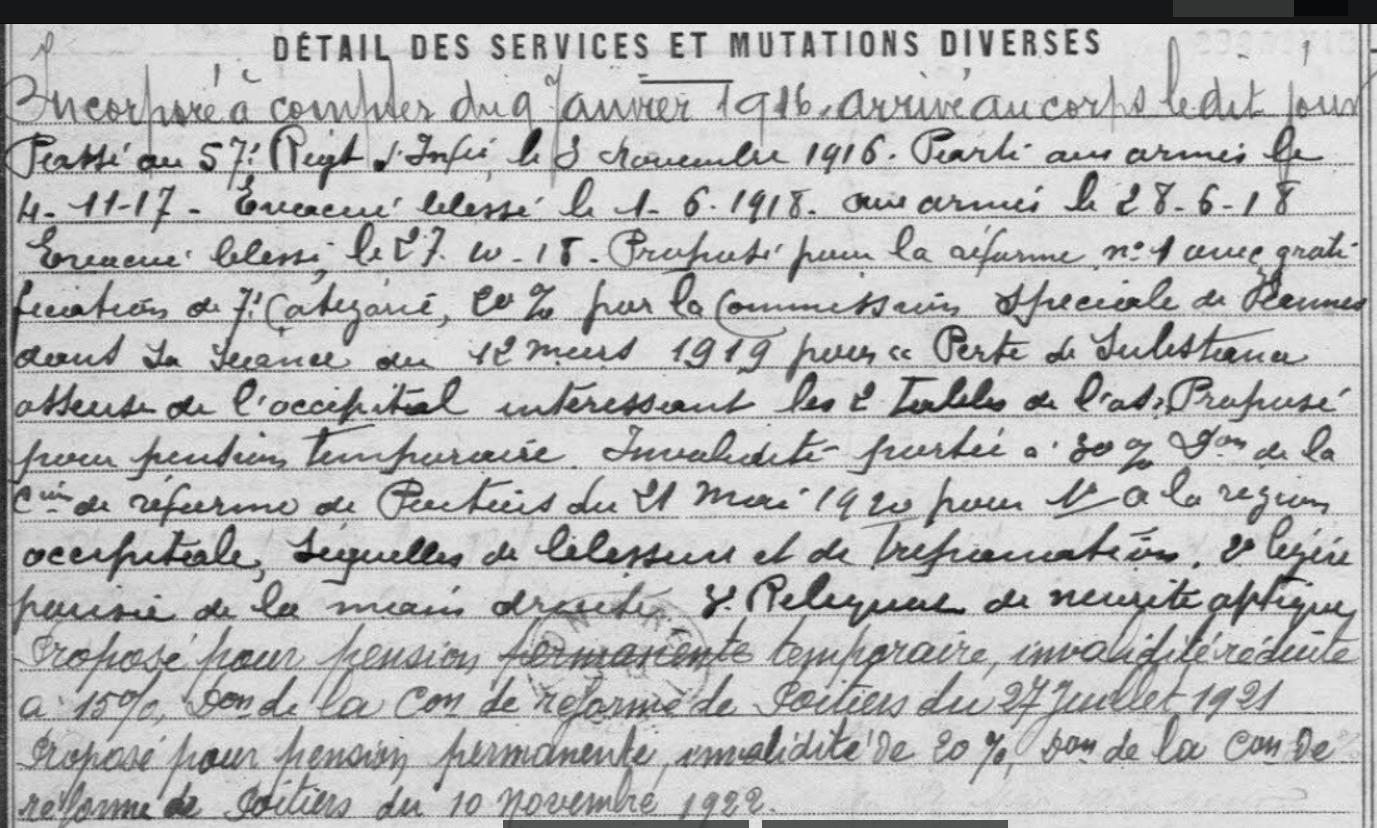 DÉTAIL DES SERVICES ET MUTATIONS DIVERSES
Incorporé à compter du 9 Janvier 1916, arrivé au corps le dit jour
Passé au 57e Régt d'Infie le 3 novembre 1916. Parti aux armées le
4-11-17 - Evacué blessé le 1-6-1918. aux armées le 28-6-18
Evacué blessé le 27-10-18. Proposé pour la réforme n°1 avec grati
fication de 7e Catégorie, 20% par la Commission Spéciale de
dans sa séance du 12 mars 1919 pour "Perte de Substance
osseuse de l'occipital intéressant les 2 tables de l'os". Proposé
pour pension temporaire. Invalidité portée à 30% Don de la
Con de réforme de Poitiers du 21 Mai 1920 pour 1° à la région
occipitale, Séquelles de blessure et de trépanation. 2° légère
parésie de la main droite 3° Reliquat de névrite optique
Proposé pour pension permanente temporaire, invalidité réduite
à 15%, Don de la Con de réforme de Poitiers du 27 Juillet 1921
Proposé pour pension permanente, invalidité de 20%, Don de la Con de
réforme de Poitiers du 10 novembre 1922.